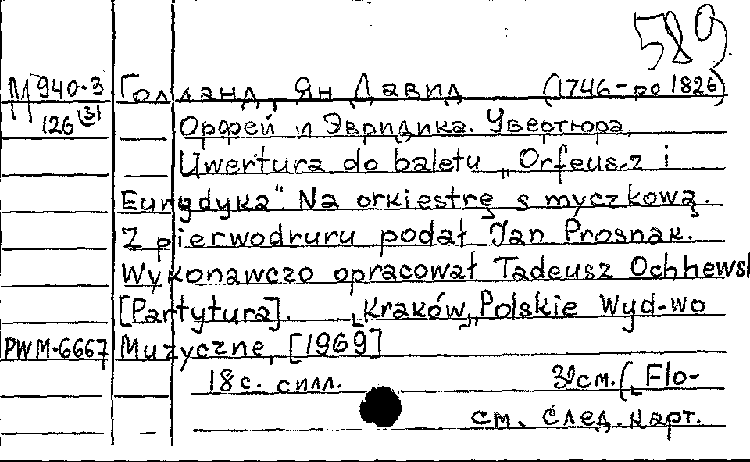 589
М 940-3 Голланд, Ян Давид (1746-po 1826)
126 (3) Орфей и Эвридика. Увертюра.
Uwertura do baletu „Orfeusz i
Eurydyka" Na orkiestrę smyczkową.
Z pierwodruru podał Jan Prosnak.
Wykonawczo opracował Tadeusz Ochlewsk
[Partytura]. Kraków, Polskie Wyd-wo
PWM-6667 Muzyczne, [1969]
18 с. силл. см. (Flo-
см. след. карт.